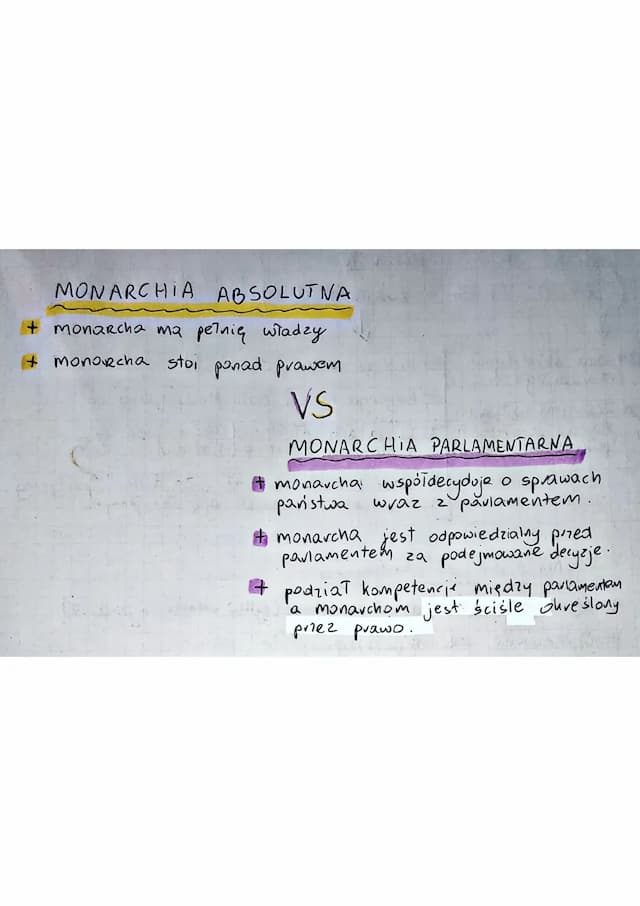 MONARCHIA ABSOLUTNA
+ monarcha ma pełnię władzy
+ monarcha stoi ponad prawem
VS
MONARCHIA PARLAMENTARNA
+ monarcha współdecyduje o sprawach
państwa wraz z parlamentem.
+ monarcha jest odpowiedzialny przed
parlamentem za podejmowane decyzje.
+ podział kompetencji między parlamentem
a monarchom jest ściśle określony
przez prawo.